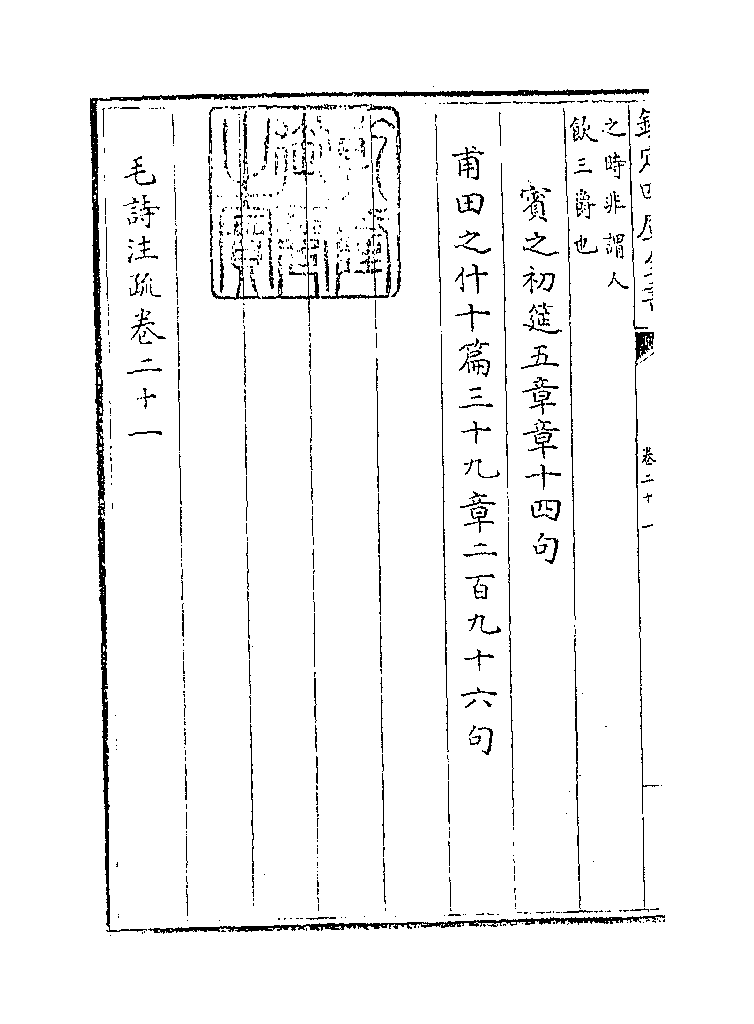 欽定四庫全書
卷二十一
之時非謂人
飲三爵也
賓之初筵五章章十四句
甫田之什十篇三十九章二百九十六句
毛詩注疏卷二十一